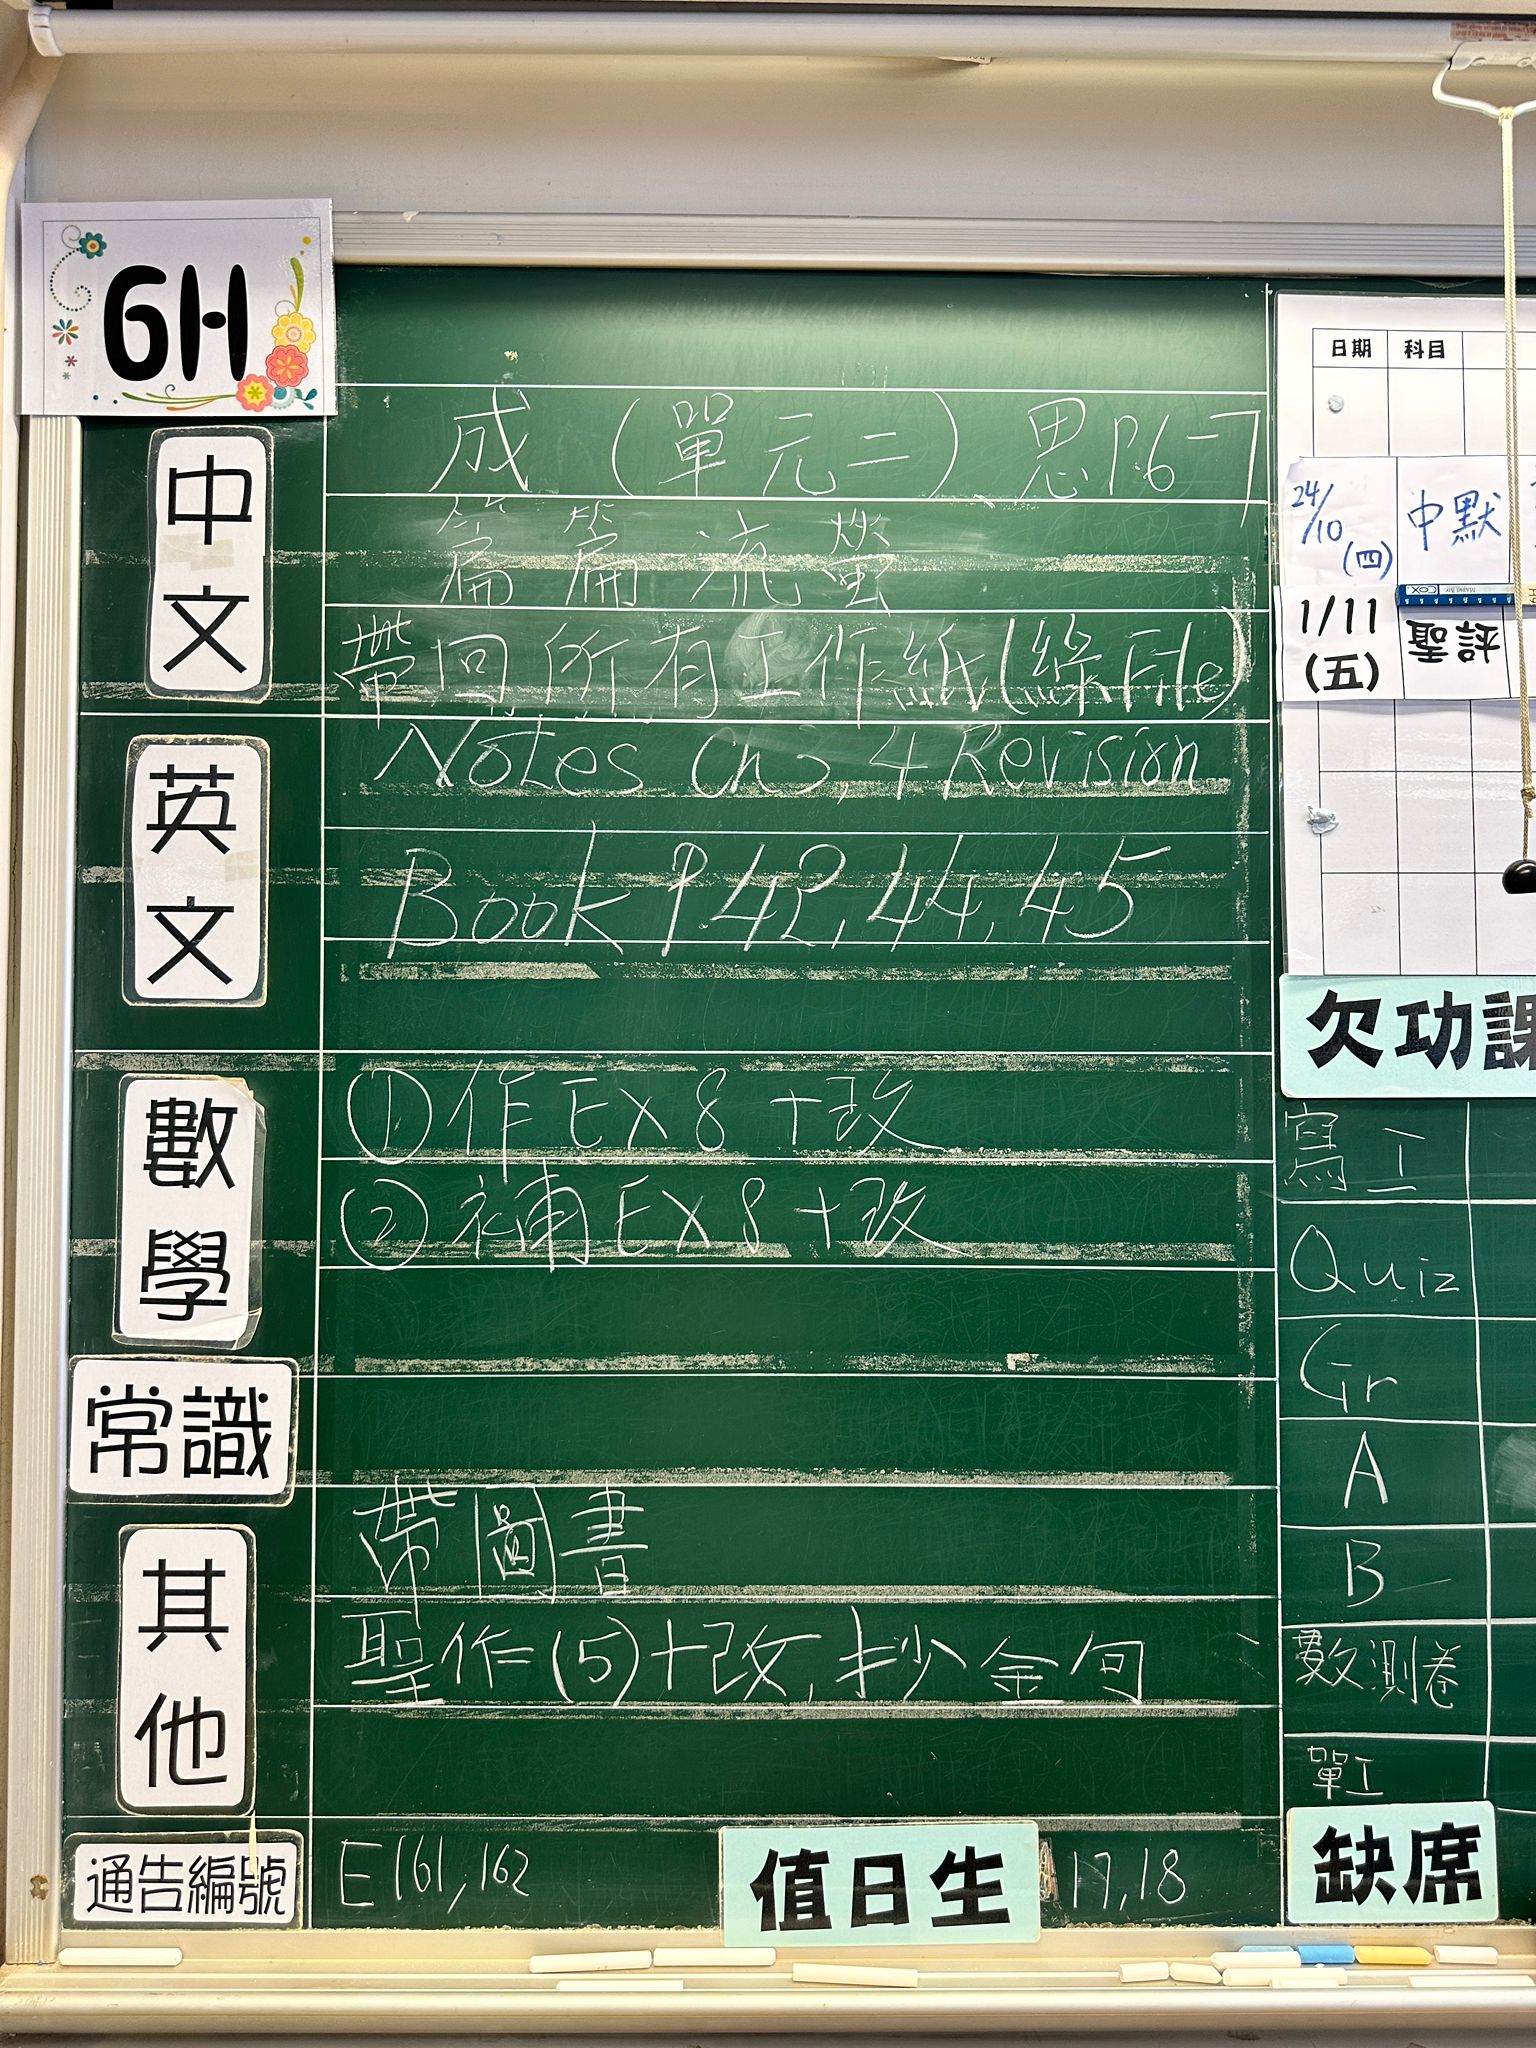 6H
中文
成（單元二）思P.6-7
篇篇流螢
帶回所有工作紙(綠File)
英文
Notes Ch3,4 Revision
Book P.42,44,45
數學
①作Ex8+改
②補Ex8+改
常識
其他
帶圖書
聖作(5)+改,抄金句
通告編號
E161,162
值日生
17,18
日期 科目
24/10(四) 中默
1/11(五) 聖評
欠功課
寫工
Quiz
Gr
A
B
數測卷
單工
缺席